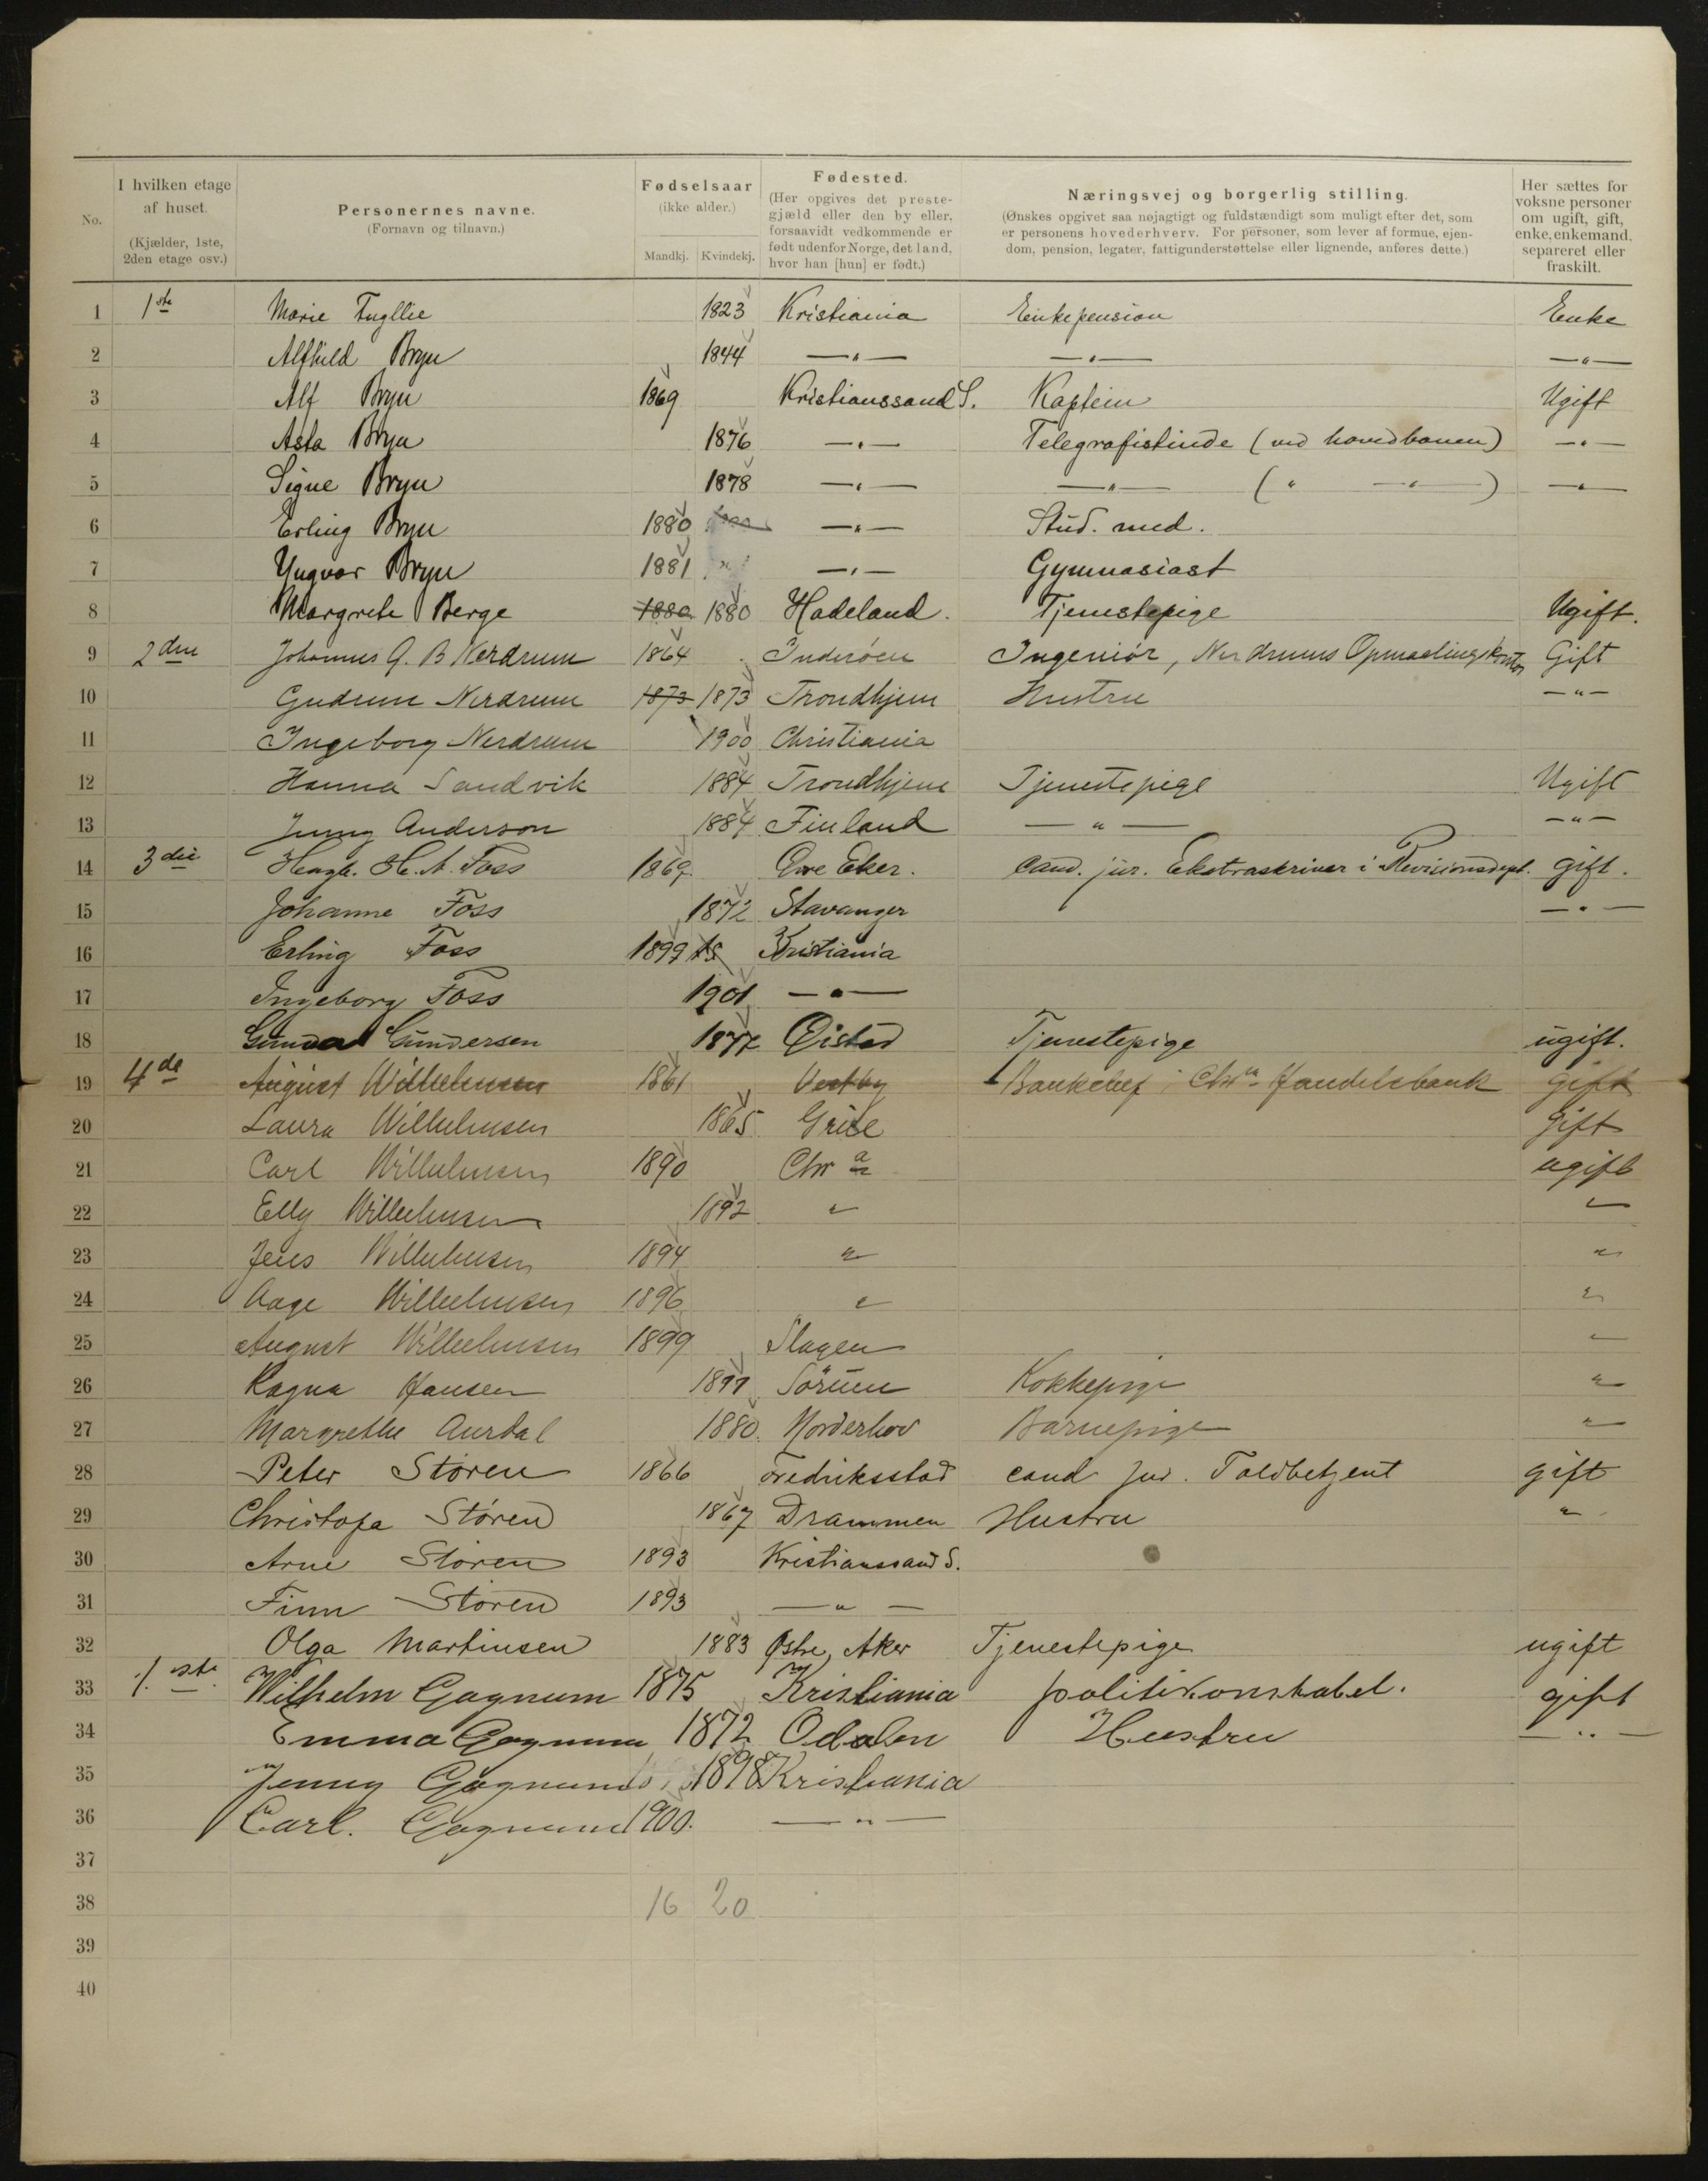 No.
I hvilken etage af huset. (Kjælder, 1ste, 2den etage osv.)
Personernes navne. (Fornavn og tilnavn.)
Fødselsaar (ikke alder.) Mandkj. Kvindekj.
Fødested. (Her opgives det prestegjæld eller den by eller, forsaavidt vedkommende er født udenfor Norge, det land, hvor han [hun] er født.)
Næringsvej og borgerlig stilling. (Ønskes opgivet saa nøjagtigt og fuldstændigt som muligt efter det, som er personens hovederhverv. For personer, som lever af formue, ejendom, pension, legater, fattigunderstøttelse eller lignende, anføres dette.)
Her sættes for voksne personer om ugift, gift, enke, enkemand, separeret eller fraskilt.
1 1ste Marie 1823 Kristiania Enkepension Enke
2 Alfhild Bryn 1844 —"— —"— —"—
3 Alf Bryn 1869 Kristianssand S. Kaptein Ugift
4 Asta Bryn 1876 —"— Telegrafistinde (ved hovedbanen) —"—
5 Signe Bryn 1878 —"— —"— (" —"—) —"—
6 Erling Bryn 1880 —"— Stud. med.
7 Yngvar Bryn 1881 " —"— Gymnasiast
8 Margrete Berge 1880 1880 Hadeland. Tjenestepige Ugift.
9 2den Johannes G. B Nerdrum 1864 Inderöen Ingeniör, Nerdrums Opmaalingskontor Gift
10 Gudrun Nerdrum 1873 1873 Trondhjem Hustru —"—
11 Ingeborg Nerdrum 1900 Christiania
12 Hanna Sandvik 1884 Trondhjem Tjenestepige Ugift
13 Jenny Anderson 1884 Finland —"— —"—
14 3die H. A. Foss 1869. Øvre Eker. Cand. jur. Ekstraskriver i Revisionsdept. gift.
15 Johanne Foss 1872 Stavanger —"—
16 Erling Foss 1899 Kristiania
17 Ingeborg Foss 1901 —"—
18 Gunda Gundersen 1877 Öistad Tjenestepige ugift.
19 4de August Wilhelmsen 1861 Vestby Bankchef i Chra Handelsbank gift
20 Laura Wilhelmsen 1865 Grue Gift
21 Carl Wilhelmsen 1890 Chra ugift
22 Elly Wilhelmsen 1892 " "
23 Jens Wilhelmsen 1894 " "
24 Aage Wilhelmsen 1896 " "
25 August Wilhelmsen 1899 Slagen "
26 Ragna Hansen Sörum Kokkepige "
27 Margrethe Aurdal 1880. Norderhov Barnepige "
28 Peter Støren 1866 Fredriksstad cand jur. Toldbetjent gift
29 Christofa Støren 1867 Drammen Hustru "
30 Arne Støren 1893 Kristianssand S.
31 Finn Støren 1893 —"—
32 Olga Martinsen 1883 Østre Aker Tjenestepige ugift
33 1.ste Wilhelm Gagnum 1875 Kristiania politikonstabel. gift
34 Emma Gagnum 1872 Odalen Hustru —"—
35 Jenny Gagnum 1898 Kristiania
36 Carl. Gagnum 1900. —"—
37
38 16 20
39
40